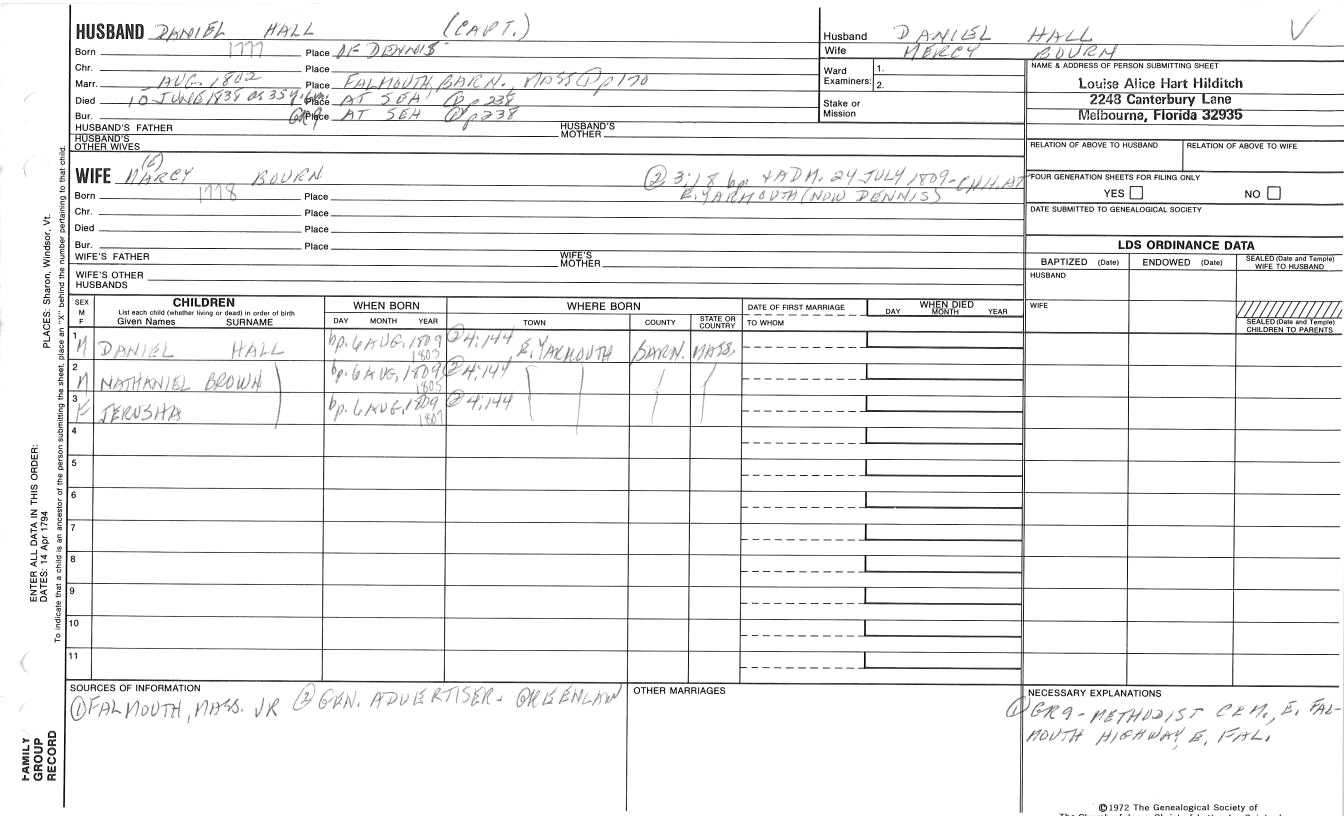 HUSBAND DANIEL HALL (CAPT.)
Born 1777 Place OF DENNIS
Chr. Place
Marr. - AUG. 1802 Place FALMOUTH, BARN., MASS ① p 170
Died 10 JUNE 1838 Place AT SEA ① p 238
Bur. GR9 Place AT SEA ① p 238
HUSBAND'S FATHER HUSBAND'S MOTHER
HUSBAND'S OTHER WIVES
(E)
WIFE MARCY BOURN ② 3:18 bp. + ADM. 24 JULY 1809 - CH. AT
Born 1778 Place E. YARMOUTH (NOW DENNIS)
Chr. Place
Died Place
Bur. Place
WIFE'S FATHER WIFE'S MOTHER
WIFE'S OTHER HUSBANDS
Husband DANIEL HALL V
Wife MERCY BOURN
Ward Examiners: 1.
2.
Stake or Mission
NAME & ADDRESS OF PERSON SUBMITTING SHEET
Louise Alice Hart Hilditch
2248 Canterbury Lane
Melbourne, Florida 32935
RELATION OF ABOVE TO HUSBAND RELATION OF ABOVE TO WIFE
FOUR GENERATION SHEETS FOR FILING ONLY
YES NO
DATE SUBMITTED TO GENEALOGICAL SOCIETY
LDS ORDINANCE DATA
BAPTIZED (Date) ENDOWED (Date) SEALED (Date and Temple) WIFE TO HUSBAND
HUSBAND
WIFE
SEALED (Date and Temple) CHILDREN TO PARENTS
SEX M F CHILDREN WHEN BORN WHERE BORN DATE OF FIRST MARRIAGE WHEN DIED
List each child (whether living or dead) in order of birth
Given Names SURNAME DAY MONTH YEAR TOWN COUNTY STATE OR COUNTRY TO WHOM DAY MONTH YEAR
1 M DANIEL HALL bp. 6 AUG. 1809 ② 4:144 E. YARMOUTH BARN. MASS.
1803
2 M NATHANIEL BROWN bp. 6 AUG. 1809 ② 4:144
1805
3 F JERUSHA bp. 6 AUG. 1809 ② 4:144
1807
4
5
6
7
8
9
10
11
SOURCES OF INFORMATION
① FALMOUTH, MASS. VR ② GEN. ADVERTISER - GREENLAW
OTHER MARRIAGES
NECESSARY EXPLANATIONS
① GR9 - METHODIST CEM., E. FAL-
MOUTH HIGHWAY, E. FAL.
©1972 The Genealogical Society of
PLACES: Sharon, Windsor, Vt.
ENTER ALL DATA IN THIS ORDER:
DATES: 14 Apr 1794
To indicate that a child is an ancestor of the person submitting the sheet, place an "X" behind the number pertaining to that child.
FAMILY
GROUP
RECORD